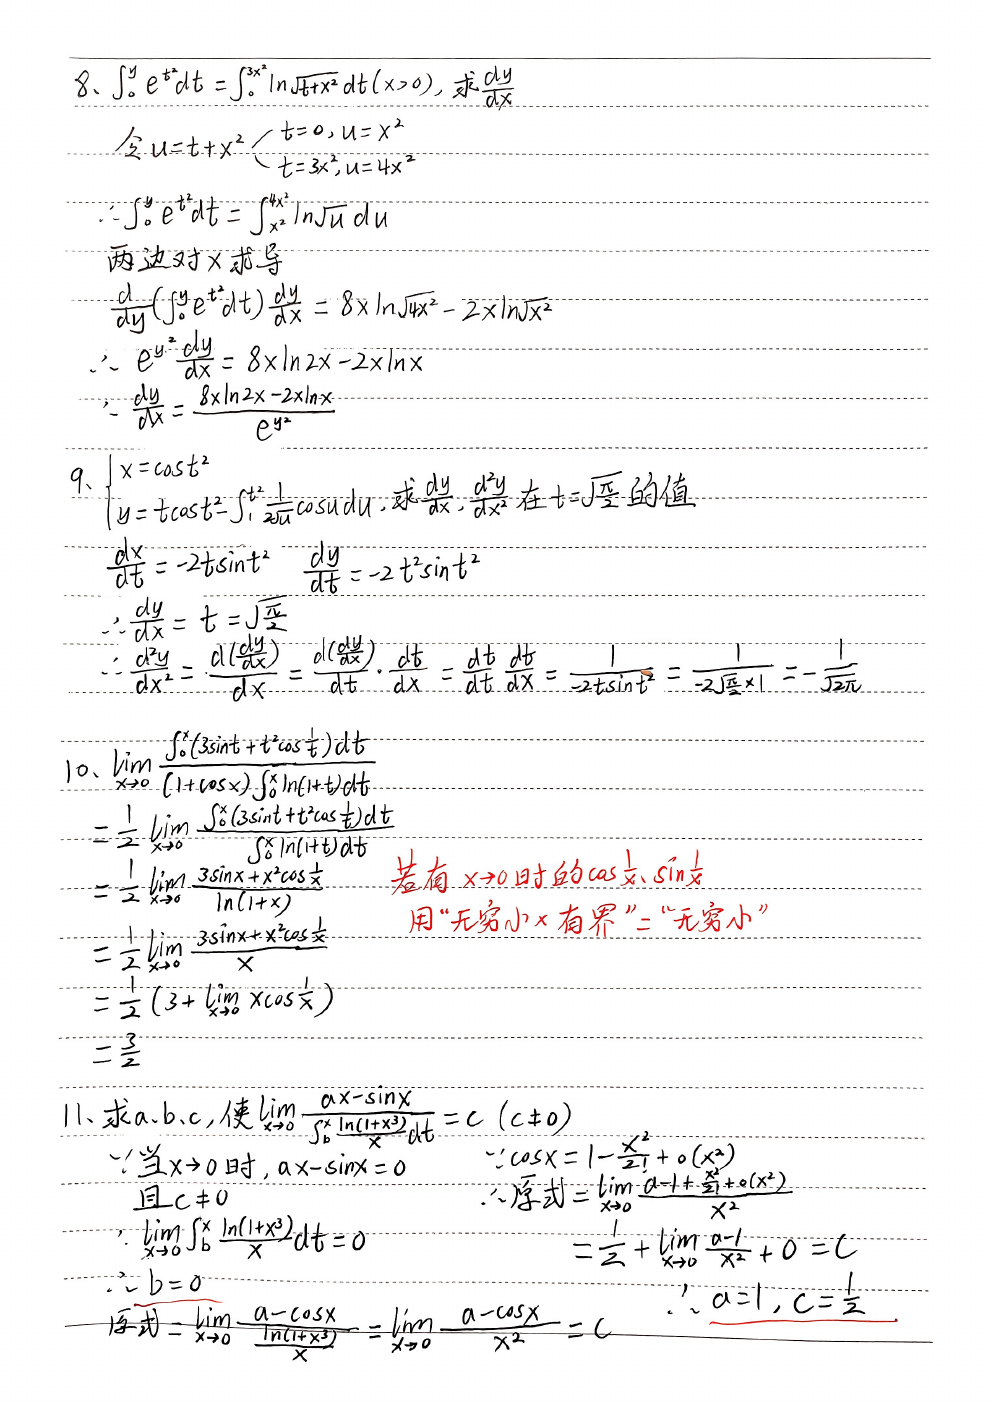 8、∫₀^y e^{t²}dt = ∫₀^{3x²} ln√(t+x²) dt (x>0), 求 dy/dx
令 u=t+x² t=0, u=x²
t=3x², u=4x²
∴ ∫₀^y e^{t²}dt = ∫_{x²}^{4x²} ln√u du
两边对x求导
d/dy (∫₀^y e^{t²}dt) dy/dx = 8xln√(4x²) - 2xln√(x²)
∴ e^{y²} dy/dx = 8xln2x - 2xlnx
∴ dy/dx = (8xln2x - 2xlnx)/e^{y²}
9、{ x = cost²
y = tcost² - ∫₁^{t²} 1/(2√u) cosu du, 求 dy/dx, d²y/dx² 在 t=√(π/2) 的值
dx/dt = -2tsint² dy/dt = -2t²sint²
∴ dy/dx = t = √(π/2)
∴ d²y/dx² = d(dy/dx)/dx = d(dy/dx)/dt · dt/dx = dt/dt dt/dx = 1/(-2tsint²) = 1/(-2√(π/2)×1) = -1/√(2π)
10、lim_{x→0} ∫₀^x(3sint+t²cos 1/t)dt / ((1+cosx)∫₀^x ln(1+t)dt)
= 1/2 lim_{x→0} ∫₀^x(3sint+t²cos 1/t)dt / ∫₀^x ln(1+t)dt
= 1/2 lim_{x→0} (3sinx+x²cos 1/x)/ln(1+x)
若有 x→0时的cos 1/x、sin 1/x
用“无穷小×有界”=“无穷小”
= 1/2 lim_{x→0} (3sinx+x²cos 1/x)/x
= 1/2 (3 + lim_{x→0} xcos 1/x)
= 3/2
11、求a、b、c, 使 lim_{x→0} (ax-sinx)/(∫_b^x ln(1+x³)/x dt) = c (c≠0)
∵当x→0时, ax-sinx=0
且c≠0
∵ lim_{x→0} ∫_b^x ln(1+x³)/x dt = 0
∴ b=0
原式 = lim_{x→0} (a-cosx)/(ln(1+x³)/x) = lim_{x→0} (a-cosx)/x² = c
∵ cosx = 1 - x²/2! + o(x²)
∴原式 = lim_{x→0} (a-1+x²/2!+o(x²))/x²
= 1/2 + lim_{x→0} (a-1)/x² + 0 = c
∴ a=1, c=1/2